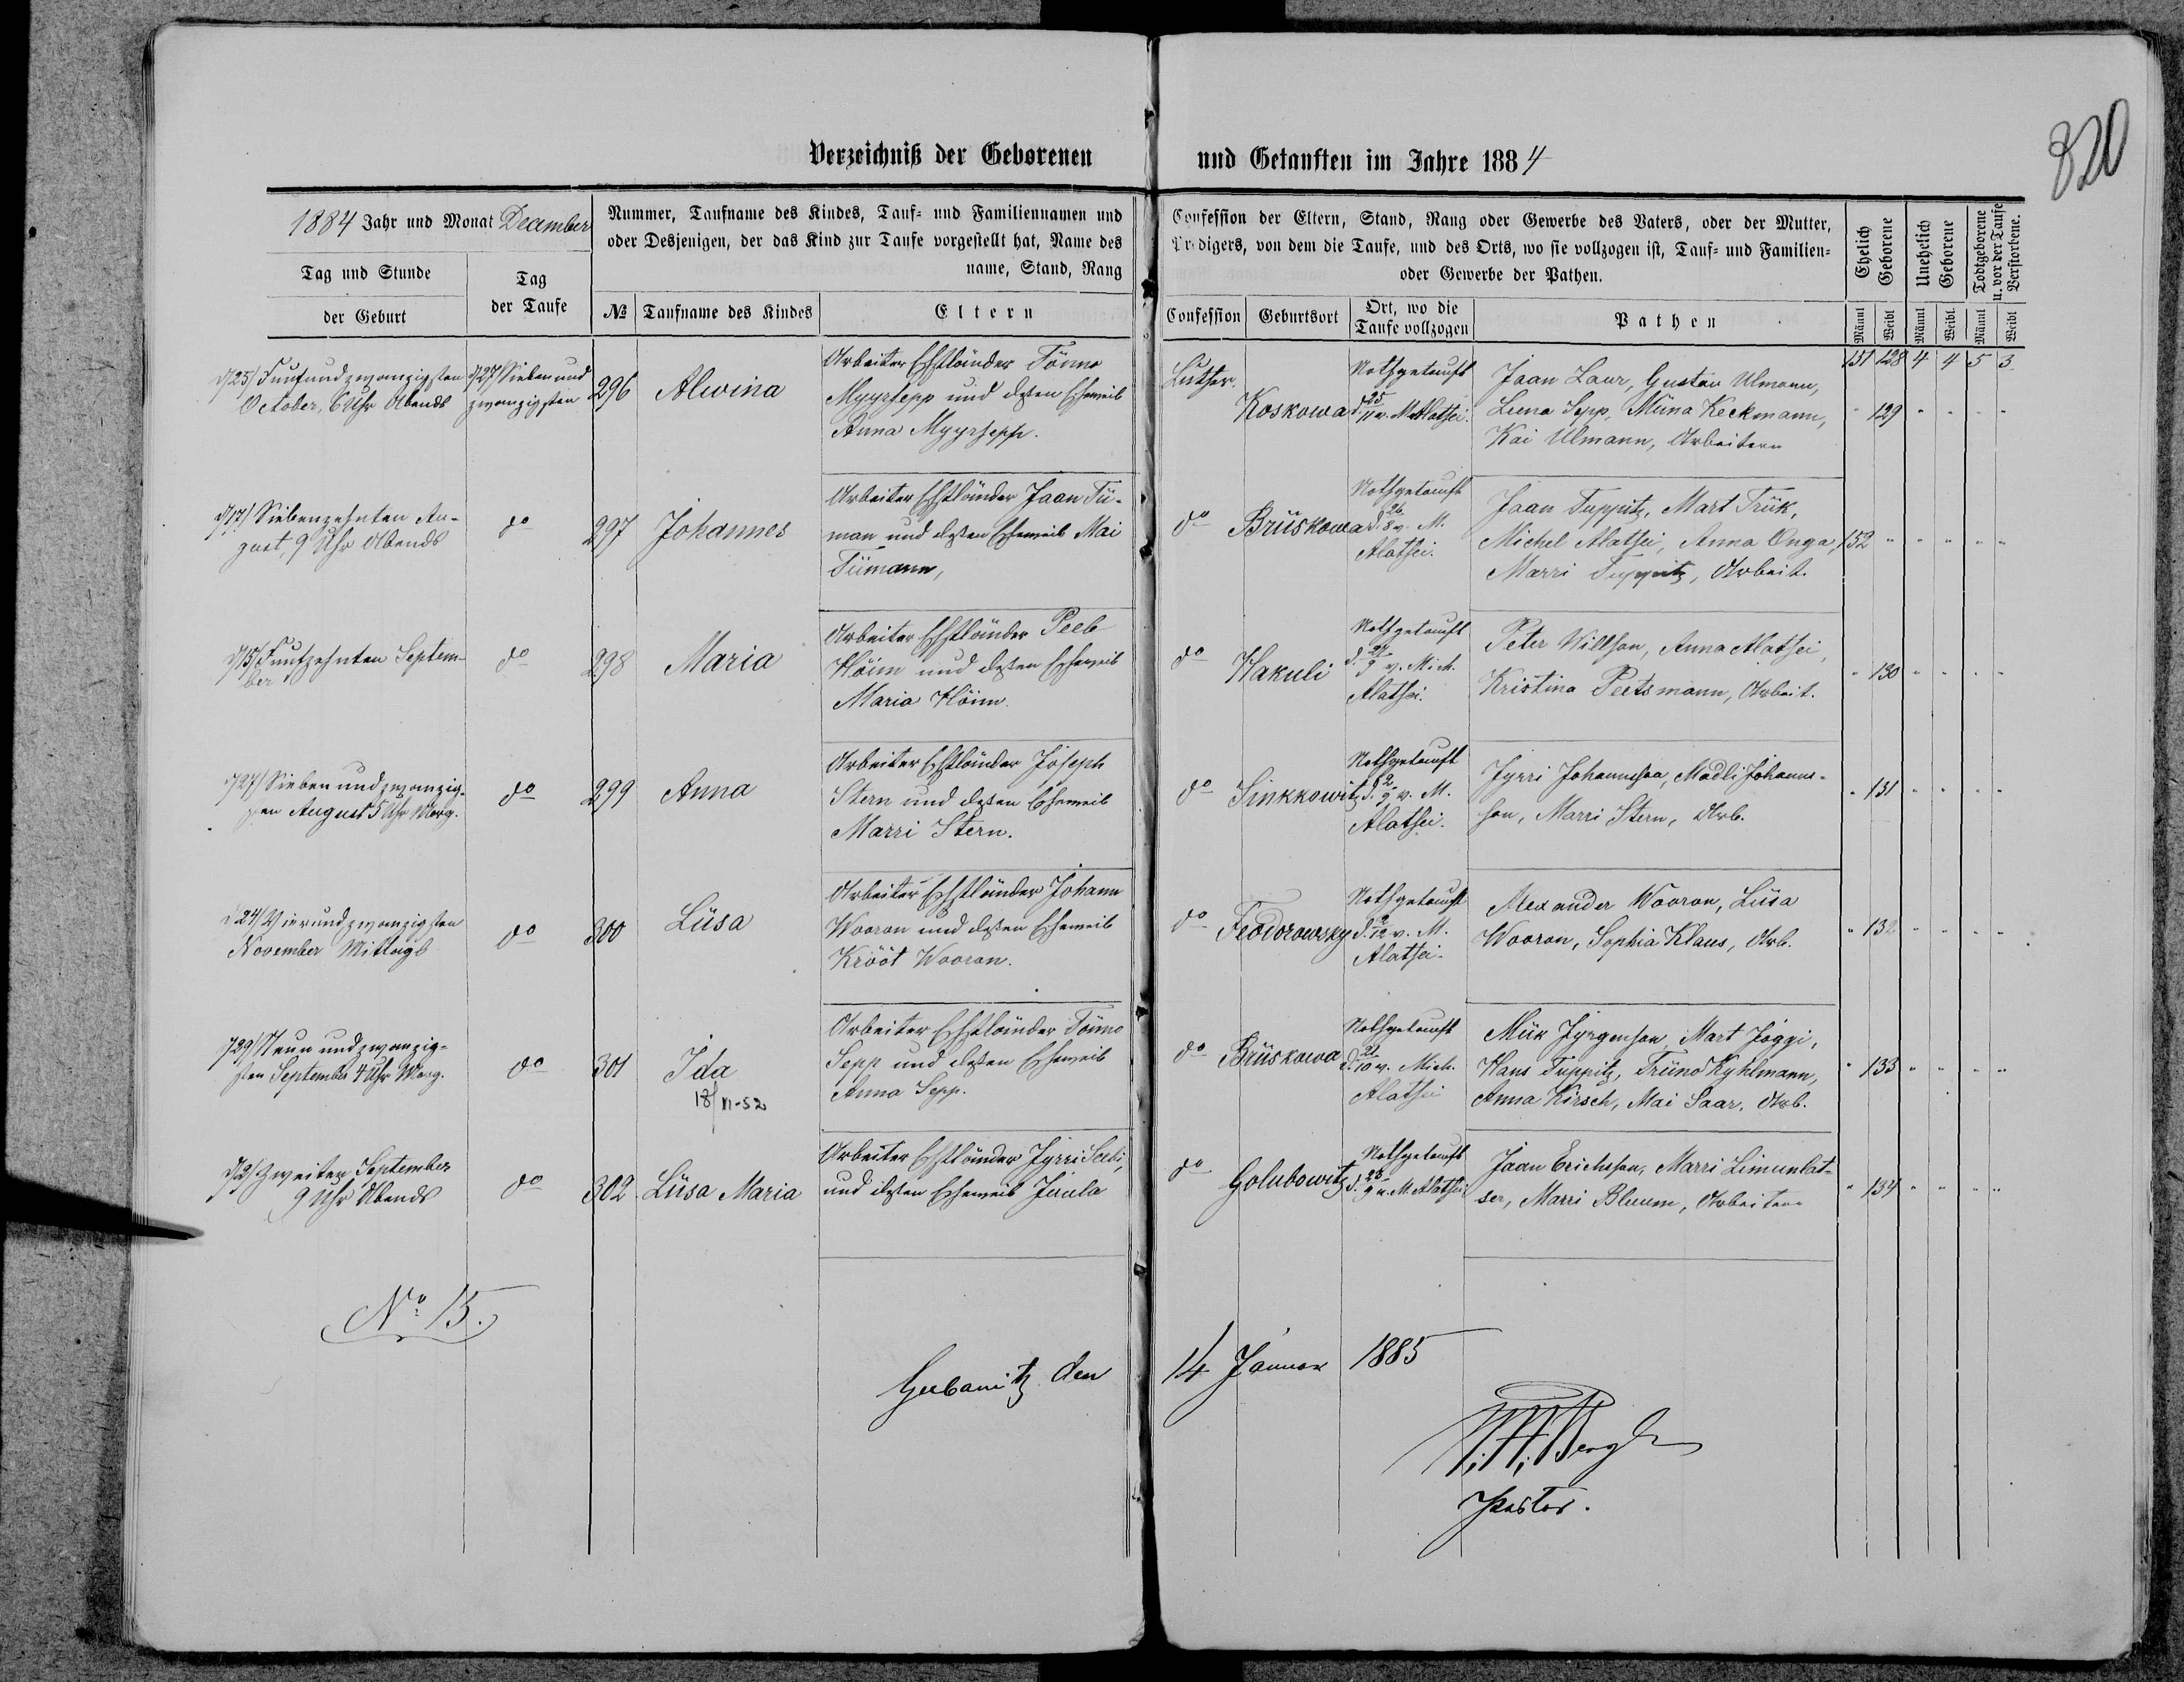 820
Verzeichniß der Geborenen und Getauften im Jahre 1884
1884 Jahr und Monat December
Tag und Stunde
der Geburt
Tag
der Taufe
Nummer, Taufname des Kindes, Tauf- und Familiennamen und
oder Desjenigen, der das Kind zur Taufe vorgestellt hat, Name des
name, Stand, Rang
№ Taufname des Kindes Eltern
Confession der Eltern, Stand, Rang oder Gewerbe des Vaters, oder der Mutter,
Predigers, von dem die Taufe, und des Orts, wo sie vollzogen ist, Tauf- und Familien-
oder Gewerbe der Pathen.
Confession Geburtsort
Ort, wo die
Taufe vollzogen
Pathen
Ehelich
Geborene
Unehelich
Geborene
Todtgeborene
u. vor der Taufe
Verstorbene.
Männl Weibl Männl Weibl. Männl Weibl
151 128 4 4 5 3.
d/25/ Fünfundzwanzigsten
October, 6 Uhr Abends
d/27/ Sieben und
zwanzigsten
296 Alwina
Arbeiter Ehstländer Tönno
Myyrsepp und dessen Eheweib
Anna Myyrsepp.
Luther.
Koskowa
Nothgetauft
d. 25/11 v. M. Alatsei.
Jaan Laur, Gustav Ulmann,
Leena Sepp, Miina Keckmann,
Kai Ulmann, Arbeitern
" 129 " " " "
d/17/ Siebenzehnten Au-
gust, 9 Uhr Abends
do
297 Johannes
Arbeiter Ehstländer Jaan Tii-
man und dessen Eheweib Mai
Tiimann,
do Brüskowa
Nothgetauft
d. 26/8 v. M.
Alatsei.
Jaan Tuppitz, Mart Trük,
Michel Alatsei, Anna Onga,
Marri Tuppitz, Arbeit.
152 " " " " "
d/15/ Fünfzehnten Septem-
ber
do
298 Maria
Arbeiter Ehstländer Peeb
Höim und dessen Eheweib
Maria Höim.
do Hakuli
Nothgetauft
9 v. Mich.
Alatsei.
Peter Willson, Anna Alatsei,
Kristina Peetsmann, Arbeit.
" 130 " " " "
d/27/ Sieben und zwanzig-
sten August 5 Uhr Morg.
do
299 Anna
Arbeiter Ehstländer Joseph
Stern und dessen Eheweib
Marri Stern.
do Sinkkowitz
Nothgetauft
d. 2/9 v. M.
Alatsei.
Jyrri Johannson, Madli Johann-
son, Marri Stern, Arb.
" 131 " " " "
d/24/ Vierundzwanzigsten
November Mittags
do
300 Liisa
Arbeiter Ehstländer Johann
Wooron und dessen Eheweib
Krööt Wooron.
do Feodorowsky
Nothgetauft
d. 2/12 v. M.
Alatsei.
Alexander Wooron, Liisa
Wooron, Sophia Klaus, Arb.
" 132 " " " "
d/29/ Neun und zwanzig-
sten September 4 Uhr Morg.
do
301 Ida
18/XI-52
Arbeiter Ehstländer Tönno
Sepp und dessen Eheweib
Anna Sepp.
do Brüskowa
Nothgetauft
d. 21/10 v. Mich.
Alatsei
Miik Jyrgenson, Mart Joggi,
Hans Tuppitz, Triino Kyhlmann,
Anna Kirsch, Mai Saar, Arb.
" 133 " " " "
d/2/ Zweiten September
9 Uhr Abends
do
302 Liisa Maria
Arbeiter Ehstländer Jyrri Seebi,
und dessen Eheweib Jaula
do Golubowitz
Nothgetauft
d. 23/9 v. M. Alatsei
Jaan Erichson, Marri Limunlat-
ser, Marri Bluum, Arbeitern
" 134 " " " "
No 15.
Gubanitz den 14 Januar 1885
Pastor.